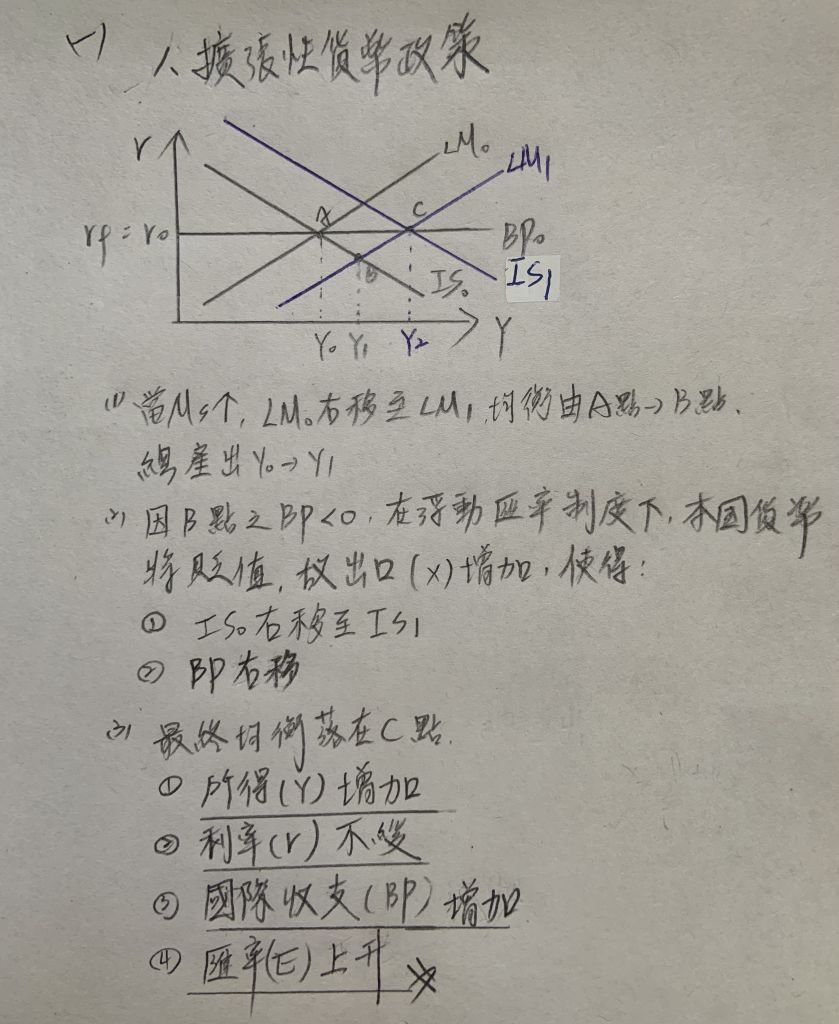 (一) 1、擴張性貨幣政策
r
LM₀
LM₁
A
C
rf = r₀
BP₀
B
IS₀
IS₁
Y₀ Y₁ Y₂ Y
(1) 當Ms↑, LM₀右移至LM₁, 均衡由A點→B點.
總產出Y₀→Y₁
(2) 因B點之BP<0, 在浮動匯率制度下, 本国貨幣
將貶值, 故出口(X)增加, 使得:
① IS₀右移至IS₁
② BP右移
(3) 最終均衡落在C點.
① 所得(Y)增加
② 利率(r)不變
③ 國際收支(BP)增加
④ 匯率(E)上升